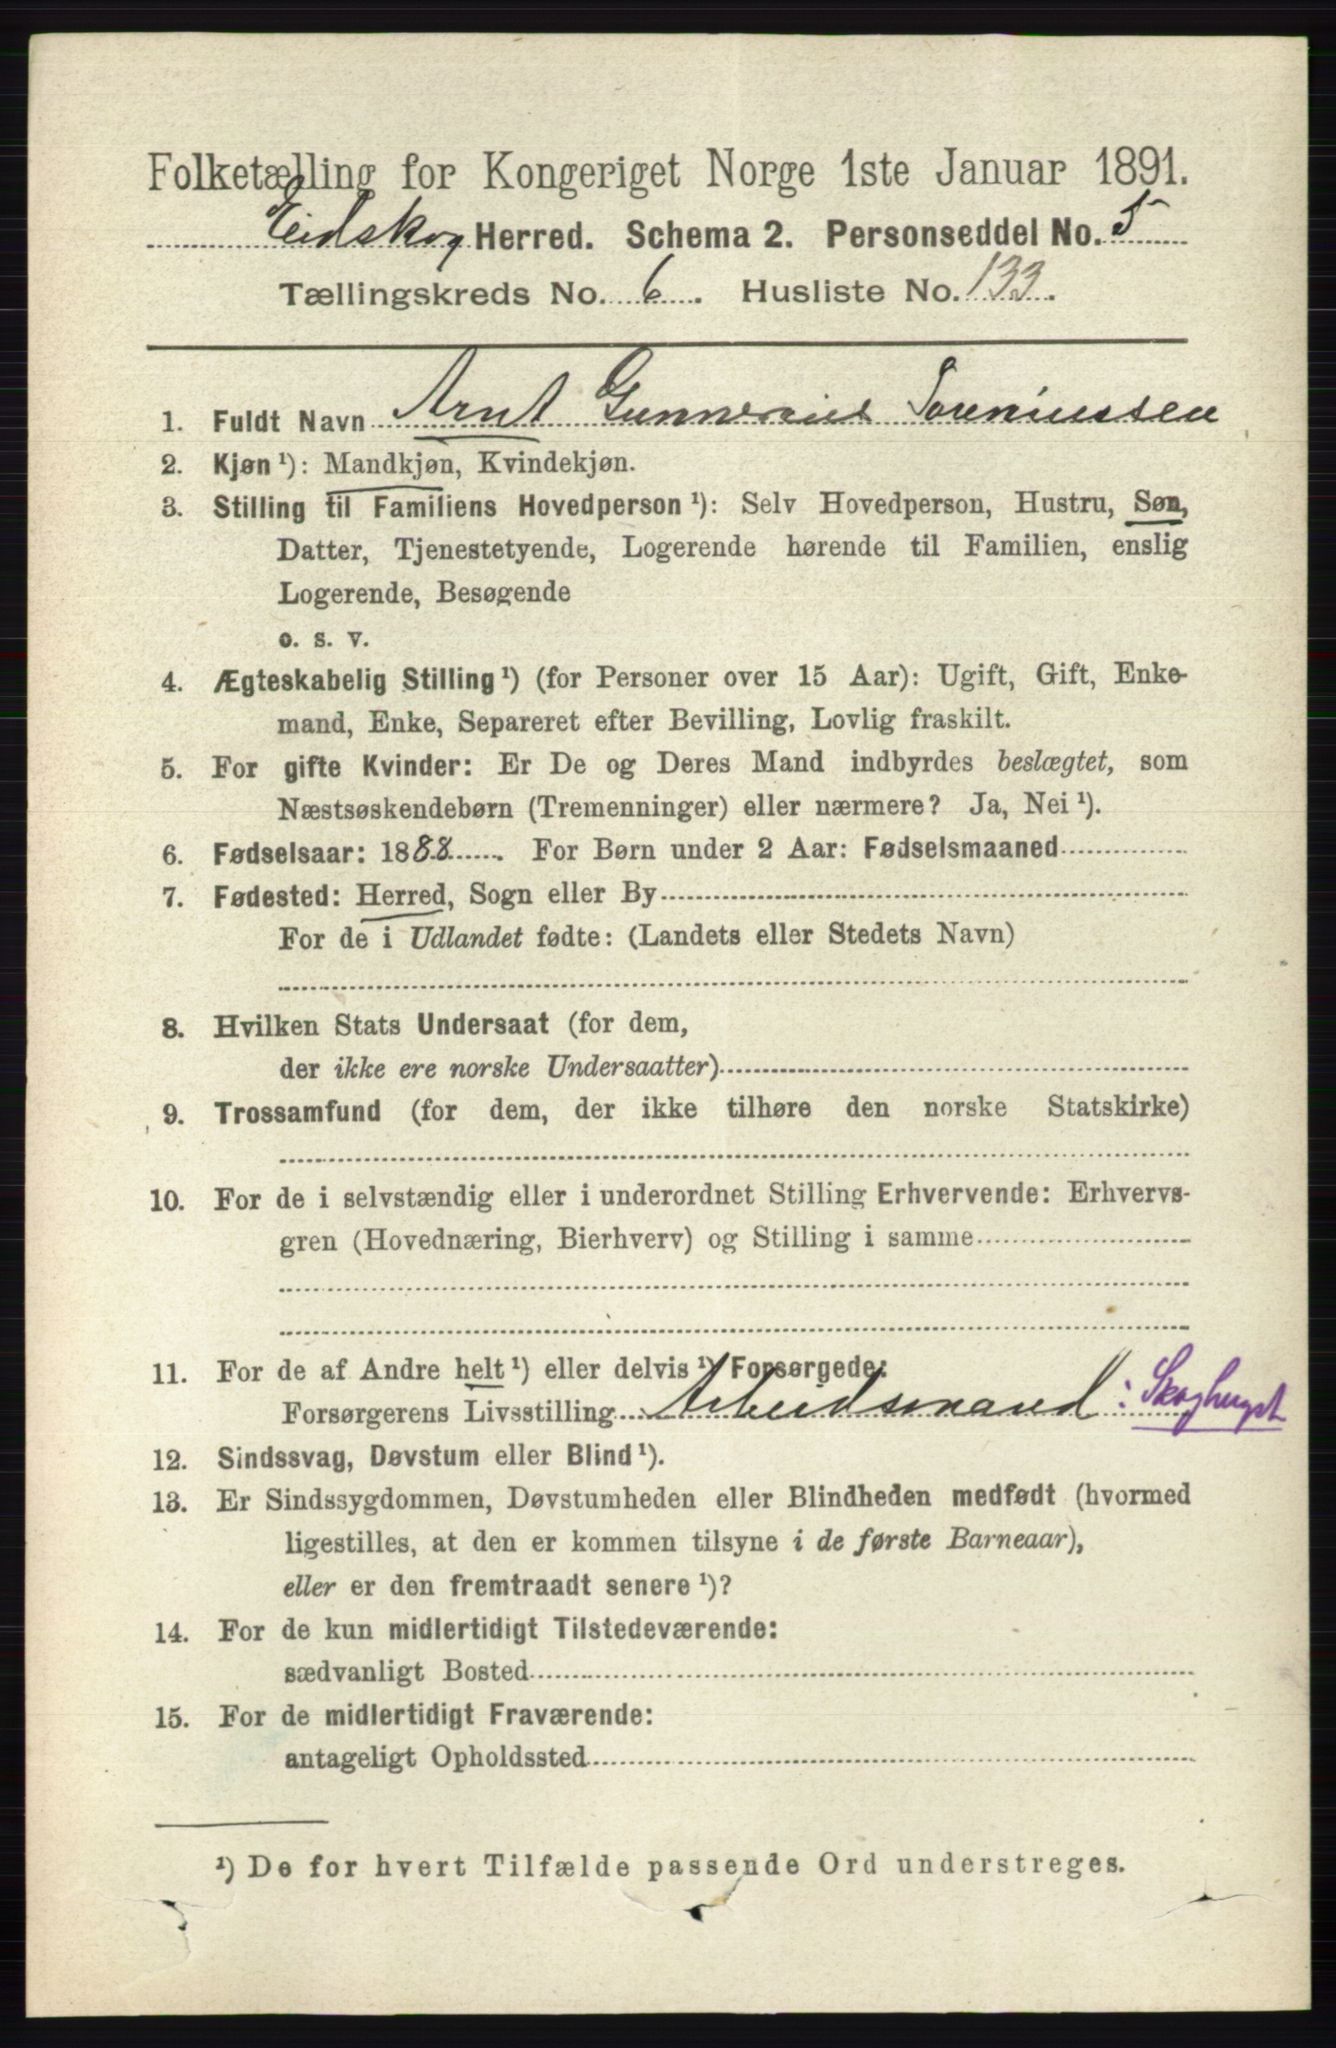 Folketælling for Kongeriget Norge 1ste Januar 1891.
Eidskog Herred. Schema 2. Personseddel No. 5
Tællingskreds No. 6. Husliste No. 133.
1. Fuldt Navn Arnt Gunnerius
2. Kjøn ¹): Mandkjøn, Kvindekjøn.
3. Stilling til Familiens Hovedperson ¹): Selv Hovedperson, Hustru, Søn,
Datter, Tjenestetyende, Logerende hørende til Familien, enslig
Logerende, Besøgende
o. s. v.
4. Ægteskabelig Stilling ¹) (for Personer over 15 Aar): Ugift, Gift, Enke-
mand, Enke, Separeret efter Bevilling, Lovlig fraskilt.
5. For gifte Kvinder: Er De og Deres Mand indbyrdes beslægtet, som
Næstsøskendebørn (Tremenninger) eller nærmere? Ja, Nei ¹).
6. Fødselsaar: 1888. For Børn under 2 Aar: Fødselsmaaned
7. Fødested: Herred, Sogn eller By
For de i Udlandet fødte: (Landets eller Stedets Navn)
8. Hvilken Stats Undersaat (for dem,
der ikke ere norske Undersaatter)
9. Trossamfund (for dem, der ikke tilhøre den norske Statskirke)
10. For de i selvstændig eller i underordnet Stilling Erhvervende: Erhvervs-
gren (Hovednæring, Bierhverv) og Stilling i samme
11. For de af Andre helt ¹) eller delvis ¹) Forsørgede:
Forsørgerens Livsstilling Arbeidsmand : Skoghugst
12. Sindssvag, Døvstum eller Blind ¹).
13. Er Sindssygdommen, Døvstumheden eller Blindheden medfødt (hvormed
ligestilles, at den er kommen tilsyne i de første Barneaar),
eller er den fremtraadt senere ¹)?
14. For de kun midlertidigt Tilstedeværende:
sædvanligt Bosted
15. For de midlertidigt Fraværende:
antageligt Opholdssted
¹) De for hvert Tilfælde passende Ord understreges.